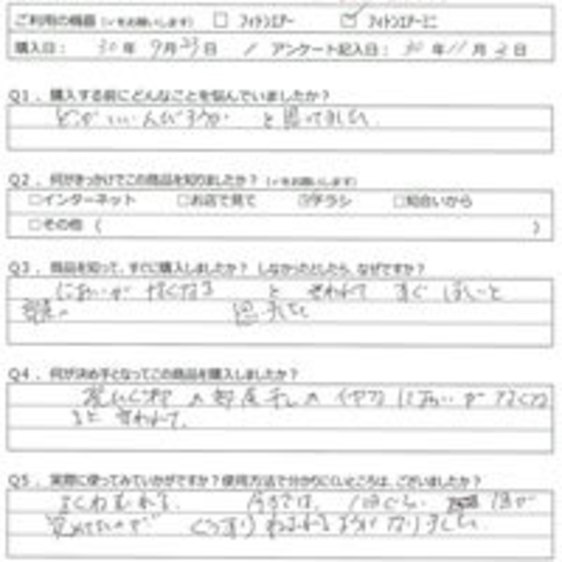 ご利用の機器（✓をお願いします） □ フィトンエアー ☑ フィトンエアーミニ
購入日： 30 年 9月23日 / アンケート記入日： 30 年 11 月 3 日
Q1．購入する前にどんなことを悩んでいましたか？
どがいいんだろうか と思ってました。
Q2．何がきっかけでこの商品を知りましたか？（✓をお願いします）
□インターネット □お店で見て ☑チラシ □知合いから
□その他（ ）
Q3．商品を知って、すぐに購入しましたか？ しなかったとしたら、なぜですか？
においが なくなる と 言われて すぐ ほしいと
思いました
Q4．何が決め手となってこの商品を購入しましたか？
の部屋干しの イヤな においが なくな
ると 言われて。
Q5．実際に使ってみていかがですか？使用方法で分かりにくいところは、ございましたか？
よくねむれる。 今までは、 1時ぐらい 目が
覚めてたのが ぐっすり ねむれる ように なりました。